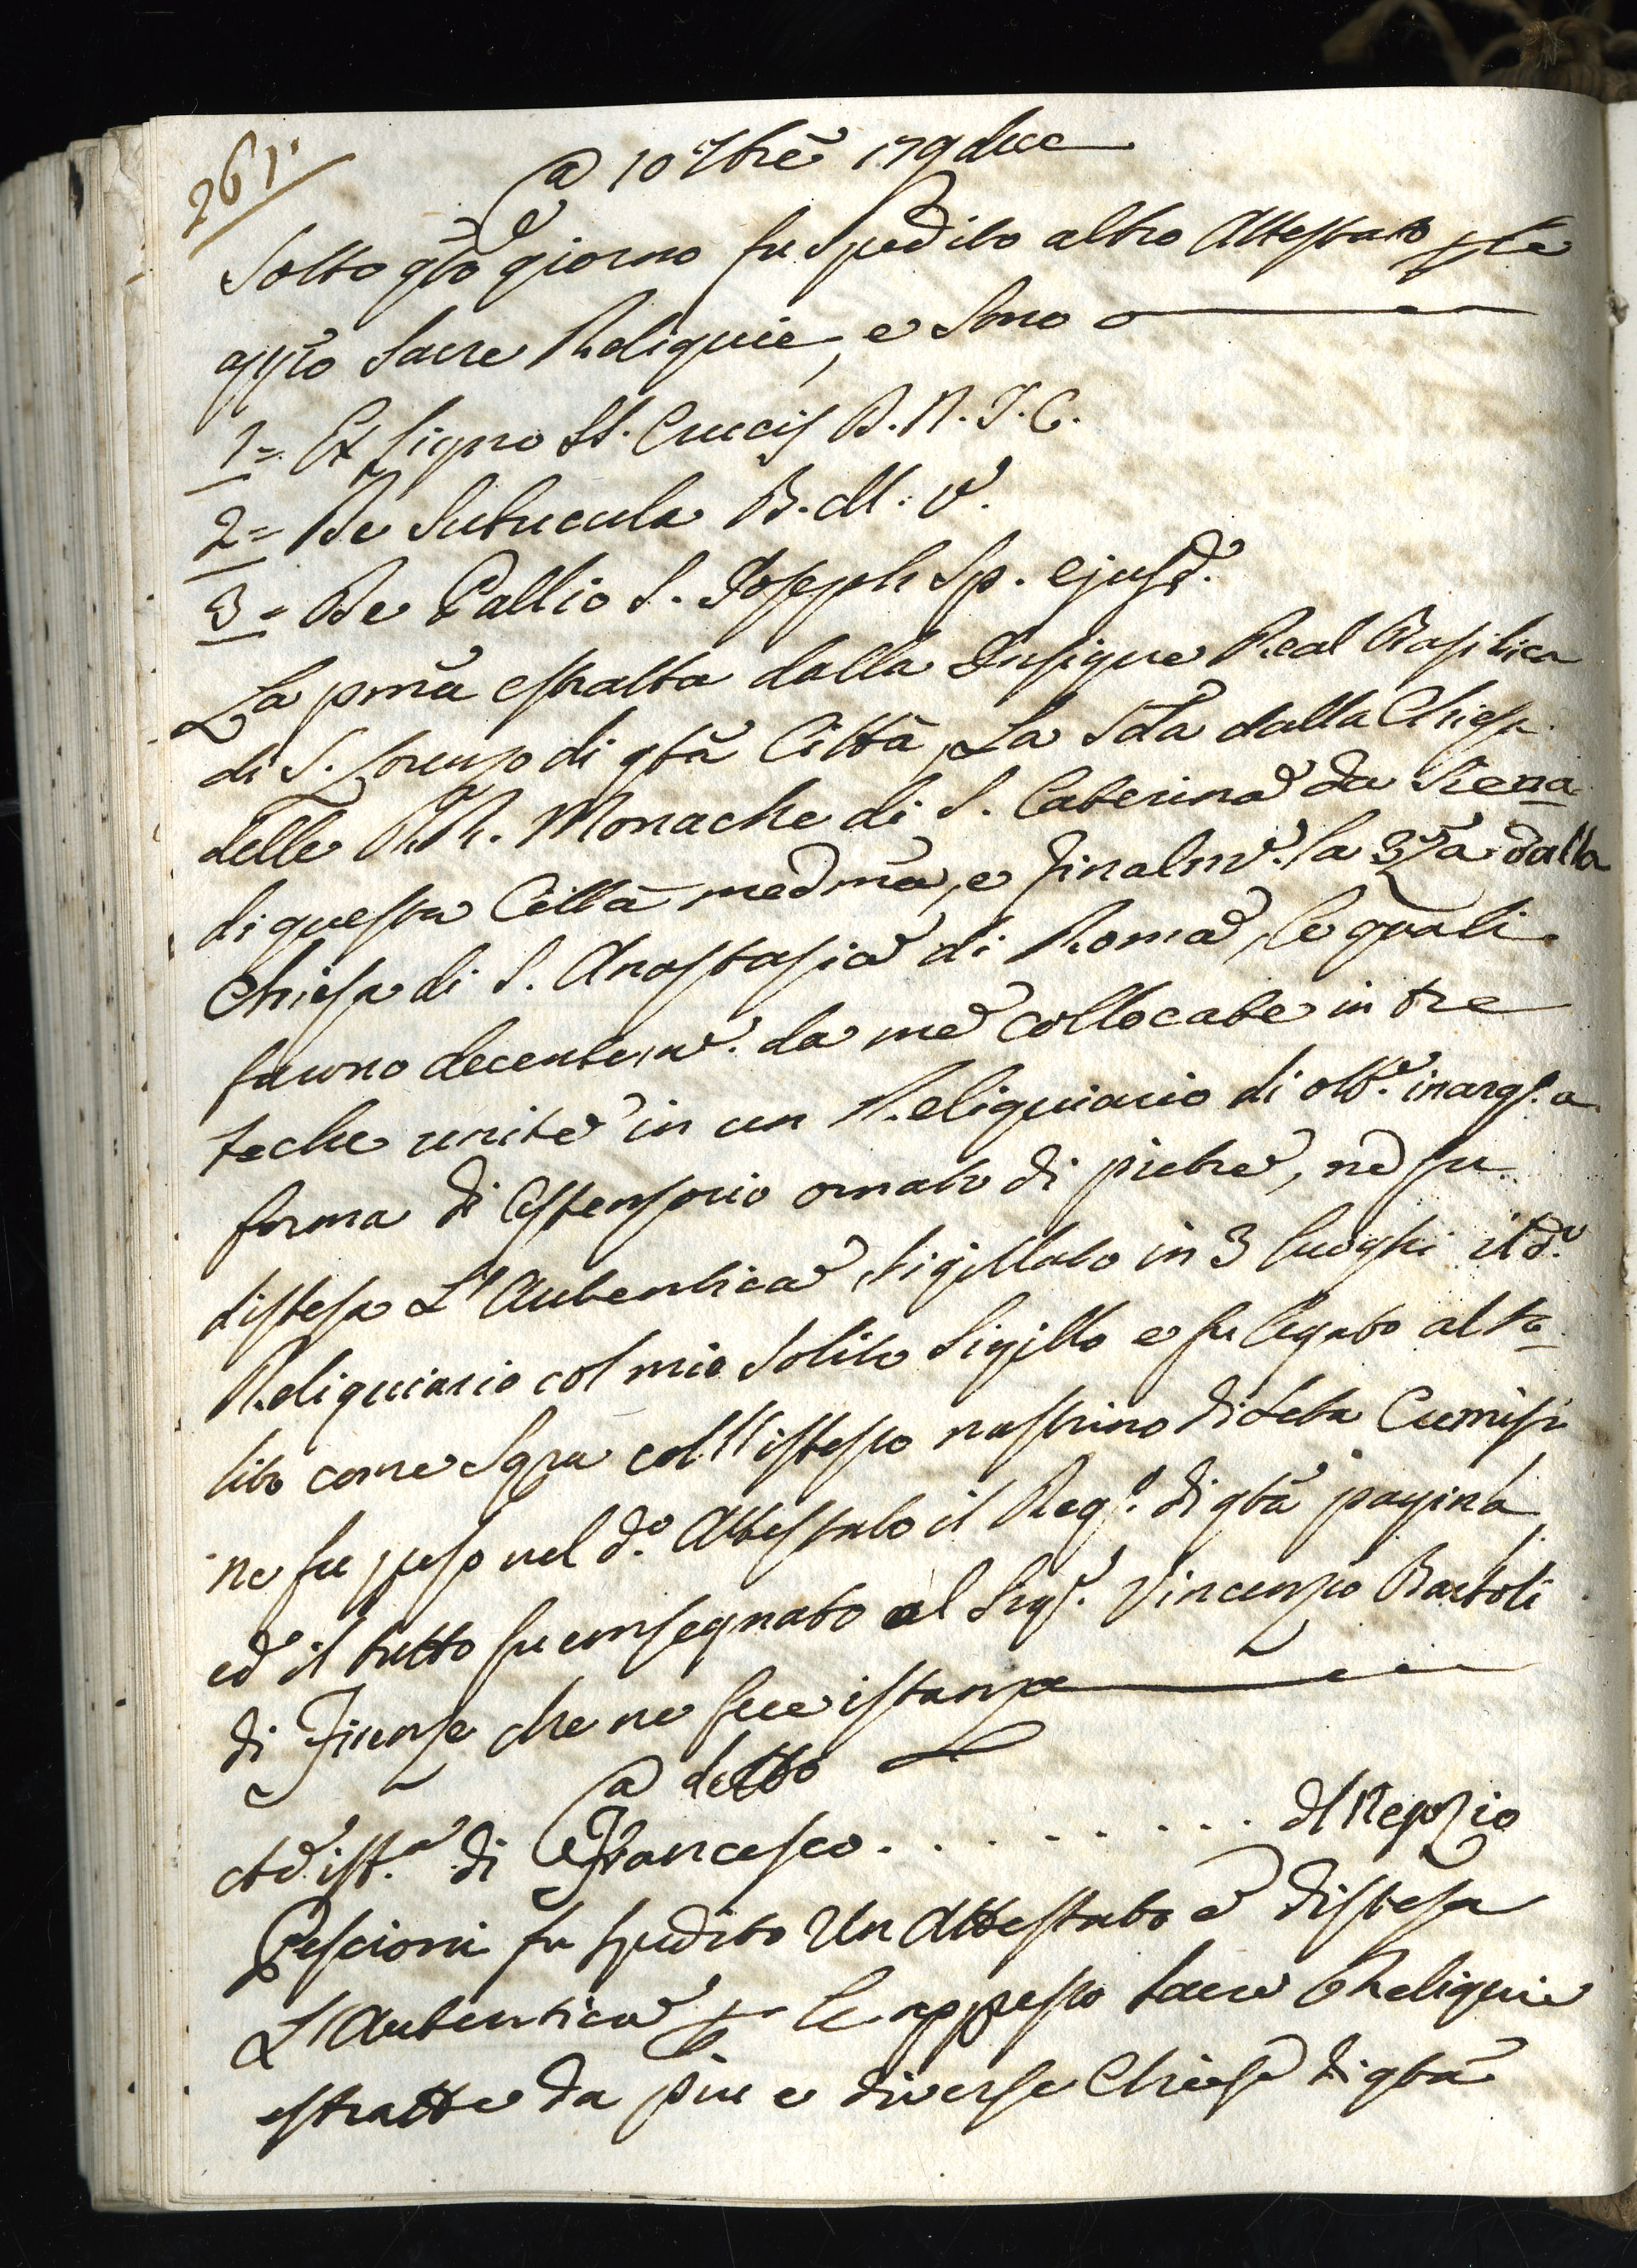 261.
@ 10 7brē 179due
Sotto q̃to giorno fu spedito altro Attestato p le
app̃o Sacre Reliquie, e Sono
1= Ex Ligno SS. Crucis D. N. J. C.
2= De Subucula B. M. V.
3= De Pallio S. Joseph Sp. ejusd.
La pmã estratta dalla Insigne Real Basilica
di S. Lorenzo di q̃ta Città, La 2da dalla Chiesa
delle RR. Monache di S. Caterina da Siena
di questa Città medmã, e finalme. la 3za dalla
Chiesa di S. Anastasia di Roma, le quali
furono decenteme. da me collocate in tre
teche unite in un Reliquiario di ott.e inarg.o a
forma di Ostensorio ornato di pietre, ne fu
distesa L'Autentica, sigillato in 3 luoghi il d.o
Reliquiario col mio Solito Sigillo e fu legato al so=
lito come Sopra coll'istesso nastrino di Seta Cremisi
ne fu preso nel d.o Attestato il Reg.o di q̃ta pagina
ed il tutto fu consegnato al Sig.r Vincenzio Bartoli
di Firenze che ne fece istanza
@ detto
Ad ist.a di Francesco . . . . . . . . . Al Negozio
Pescioni fu spedito Un Attestato e distesa
L'Autentica p le appresso Sacre Reliquie
estratte da piu e diverse Chiese di q̃ta